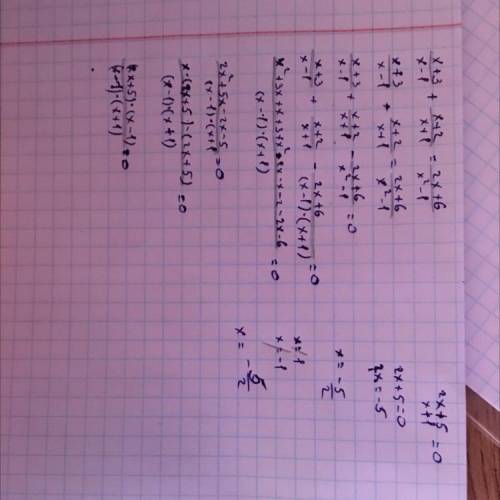 x+3/x-1 + x+2/x+1 = 2x+6/x²-1
x+3/x-1 + x+2/x+1 = 2x+6/x²-1
x+3/x-1 + x+2/x+1 - 2x+6/x²-1 = 0
x+3/x-1 + x+2/x+1 - 2x+6/(x-1)·(x+1) = 0
x²+3x+x+3+x²+2x-x-2-2x-6/(x-1)·(x+1) = 0
2x²+5x-2x-5/(x-1)·(x+1) = 0
x·(2x+5)-(2x+5)/(x-1)(x+1) = 0
(2x+5)·(x-1)/(x-1)·(x+1) = 0
2x+5/x+1 = 0
2x+5=0
2x=-5
x = -5/2
x=1
x=-1
x = -5/2